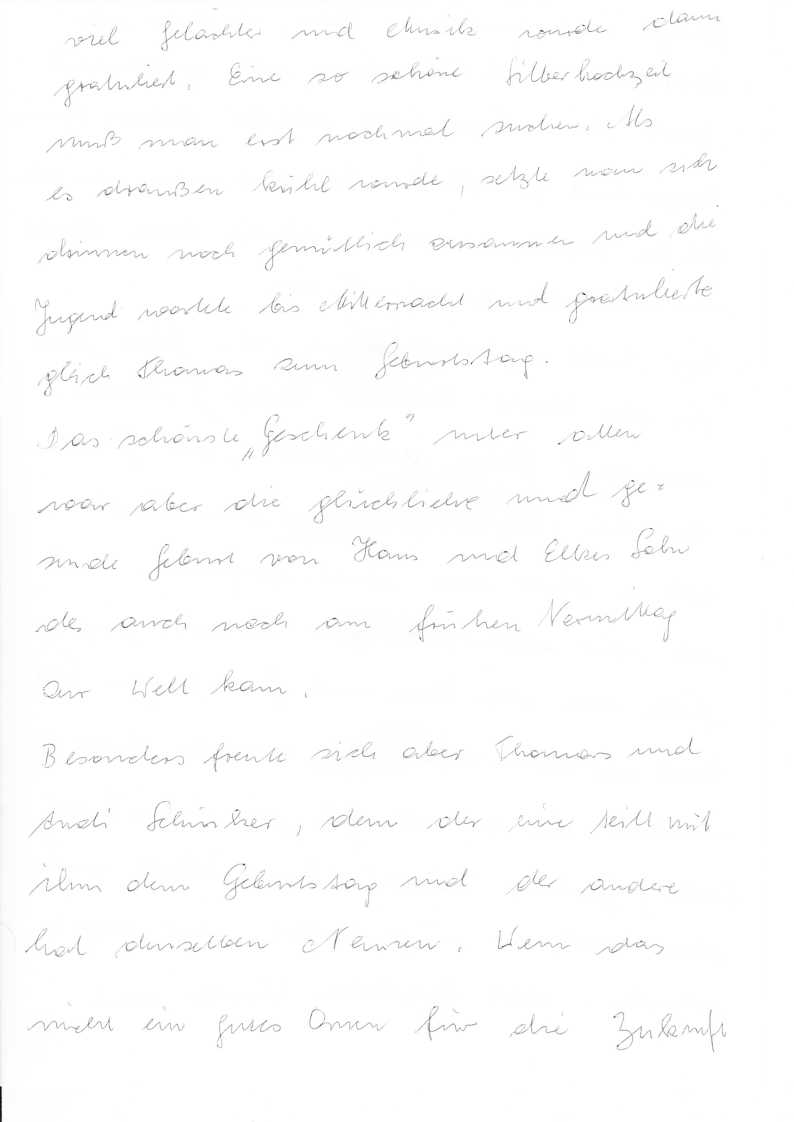 viel Gelächter und Musik wurde dann
gratuliert. Eine so schöne Silberhochzeit
muß man erst nochmal suchen. Als
es draußen kühl wurde, setzte man sich
drinnen noch gemütlich zusammen und die
Jugend wartete bis Mitternacht und gratulierte
gleich Thomas zum Geburtstag.
Das schönste „Geschenk" unter allen
war aber die glückliche und ge-
sunde Geburt von Hans und Elkes Sohn
der auch noch am frühen Vormittag
zur Welt kam.
Besonders freute sich aber Thomas und
Andi, denn der eine teilt mit
ihm den Geburtstag und der andere
hat denselben Namen. Wenn das
nicht ein gutes Omen für die Zukunft